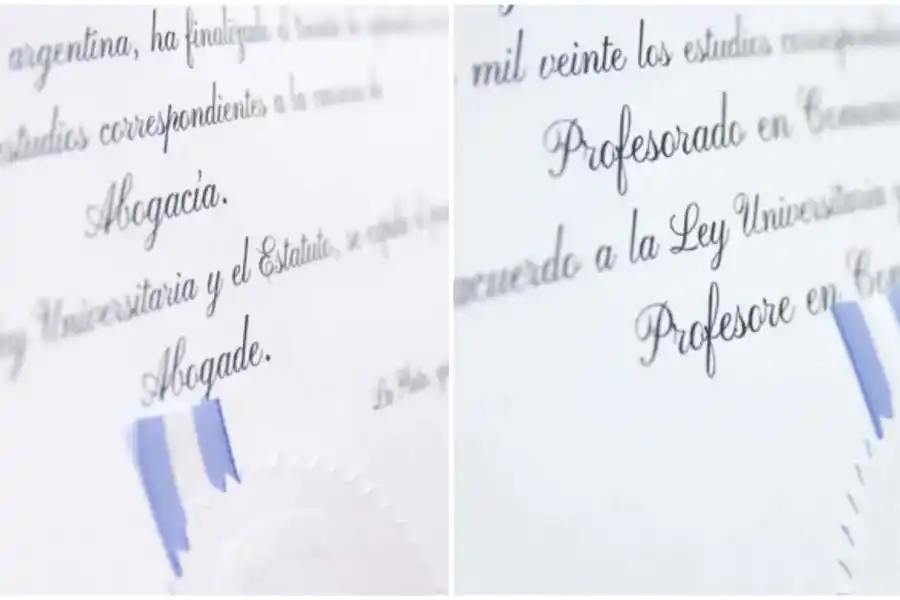 argentina, ha finalizado
estudios correspondientes a la
Abogacía.
Ley Universitaria y el Estatuto, se
Abogade.
La Plata,
mil veinte los estudios correspondientes
Profesorado en
acuerdo a la Ley Universitaria y
Profesore en